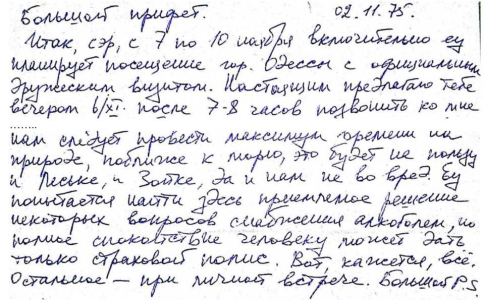 Большой привет. 02.11.75.
Итак, сэр, с 7 по 10 ноября включительно еу
планирует посещение гор. Одессы с официальным
дружеским визитом. Настоящим предлагаю тебе
вечером 6/XI. после 7-8 часов позвонить ко мне
.......
нам следует провести максимум времени на
природе, поближе к морю, это будет на пользу
и Леське, и Зойке, да и нам не во вред. Еу
попытается найти здесь приемлемое решение
некоторых вопросов снабжения алкоголем, но
полное спокойствие человеку может дать
только страховой полис. Вот, кажется, всё.
Остальное — при личной встрече. Большой P.S.